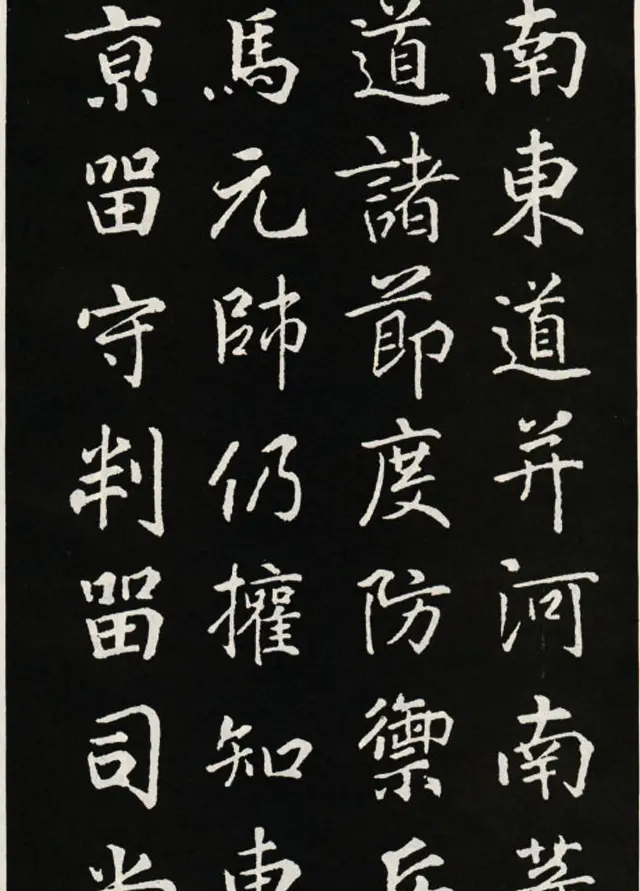 南東道并河南
道諸節度防禦
馬元帥仍權知
亰留守判留司